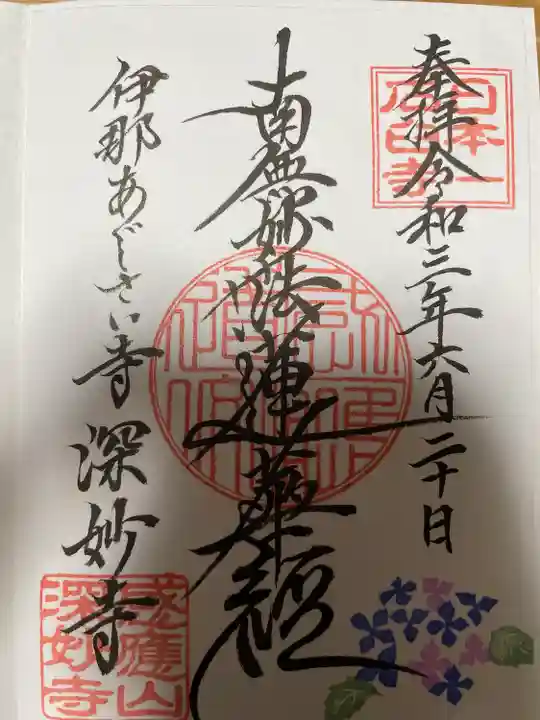 奉拝 令和三年六月二十日
南無妙法蓮華経
伊那あじさい寺 深妙寺
感應山
深妙寺